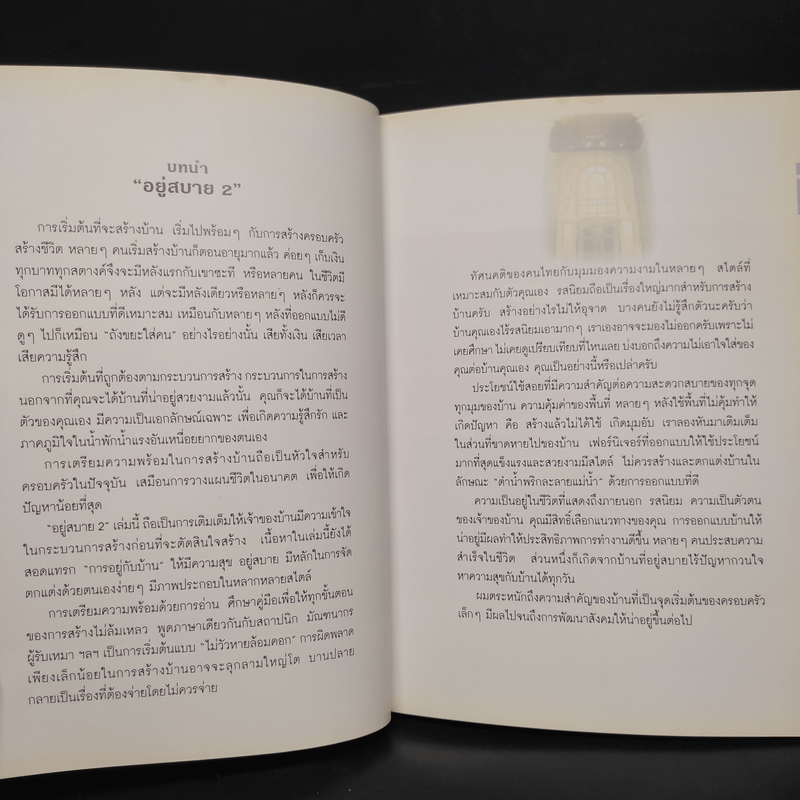 บทนำ
“อยู่สบาย 2”
การเริ่มต้นที่จะสร้างบ้าน เริ่มไปพร้อมๆ กับการสร้างครอบครัว
สร้างชีวิต หลายๆ คนเริ่มสร้างบ้านก็ตอนอายุมากแล้ว ค่อยๆ เก็บเงิน
ทุกบาททุกสตางค์จึงจะมีหลังแรกกับเขาซะที หรือหลายคน ในชีวิตมี
โอกาสมีได้หลายๆ หลัง แต่จะมีหลังเดียวหรือหลายๆ หลังก็ควรจะ
ได้รับการออกแบบที่ดีเหมาะสม เหมือนกับหลายๆ หลังที่ออกแบบไม่ดี
ดูๆ ไปก็เหมือน “ถังขยะใส่คน” อย่างไรอย่างนั้น เสียทั้งเงิน เสียเวลา
เสียความรู้สึก
การเริ่มต้นที่ถูกต้องตามกระบวนการสร้าง กระบวนการในการสร้าง
นอกจากที่คุณจะได้บ้านที่น่าอยู่สวยงามแล้วนั้น คุณก็จะได้บ้านที่เป็น
ตัวของคุณเอง มีความเป็นเอกลักษณ์เฉพาะ เพื่อเกิดความรู้สึกรัก และ
ภาคภูมิใจในน้ำพักน้ำแรงอันเหนื่อยยากของตนเอง
การเตรียมความพร้อมในการสร้างบ้านถือเป็นหัวใจสำหรับ
ครอบครัวในปัจจุบัน เสมือนการวางแผนชีวิตในอนาคต เพื่อให้เกิด
ปัญหาน้อยที่สุด
“อยู่สบาย 2” เล่มนี้ ถือเป็นการเติมเต็มให้เจ้าของบ้านมีความเข้าใจ
ในกระบวนการสร้างก่อนที่จะตัดสินใจสร้าง เนื้อหาในเล่มนี้ยังได้
สอดแทรก “การอยู่กับบ้าน” ให้มีความสุข อยู่สบาย มีหลักในการจัด
ตกแต่งด้วยตนเองง่ายๆ มีภาพประกอบในหลากหลายสไตล์
การเตรียมความพร้อมด้วยการอ่าน ศึกษาคู่มือเพื่อให้ทุกขั้นตอน
ของการสร้างไม่ล้มเหลว พูดภาษาเดียวกันกับสถาปนิก มัณฑนากร
ผู้รับเหมา ฯลฯ เป็นการเริ่มต้นแบบ “ไม่วัวหายล้อมคอก” การผิดพลาด
เพียงเล็กน้อยในการสร้างบ้านอาจจะลุกลามใหญ่โต บานปลาย
กลายเป็นเรื่องที่ต้องจ่ายโดยไม่ควรจ่าย
ทัศนคติของคนไทยกับมุมมองความงามในหลายๆ สไตล์ที่
เหมาะสมกับตัวคุณเอง รสนิยมถือเป็นเรื่องใหญ่มากสำหรับการสร้าง
บ้านครับ สร้างอย่างไรไม่ให้อุจาด บางคนยังไม่รู้สึกตัวนะครับว่า
บ้านคุณเองไร้รสนิยมเอามากๆ เราเองอาจจะมองไม่ออกครับเพราะไม่
เคยศึกษา ไม่เคยดูเปรียบเทียบที่ไหนเลย บ่งบอกถึงความไม่เอาใจใส่ของ
คุณต่อบ้านคุณเอง คุณเป็นอย่างนี้หรือเปล่าครับ
ประโยชน์ใช้สอยที่มีความสำคัญต่อความสะดวกสบายของทุกจุด
ทุกมุมของบ้าน ความคุ้มค่าของพื้นที่ หลายๆ หลังใช้พื้นที่ไม่คุ้มทำให้
เกิดปัญหา คือ สร้างแล้วไม่ได้ใช้ เกิดมุมอับ เราลองหันมาเติมเต็ม
ในส่วนที่ขาดหายไปของบ้าน เฟอร์นิเจอร์ที่ออกแบบให้ใช้ประโยชน์
มากที่สุดแข็งแรงและสวยงามมีสไตล์ ไม่ควรสร้างและตกแต่งบ้านใน
ลักษณะ “ตำน้ำพริกละลายแม่น้ำ” ด้วยการออกแบบที่ดี
ความเป็นอยู่ในชีวิตที่แสดงถึงภายนอก รสนิยม ความเป็นตัวตน
ของเจ้าของบ้าน คุณมีสิทธิ์เลือกแนวทางของคุณ การออกแบบบ้านให้
น่าอยู่มีผลทำให้ประสิทธิภาพการทำงานดีขึ้น หลายๆ คนประสบความ
สำเร็จในชีวิต ส่วนหนึ่งก็เกิดจากบ้านที่อยู่สบายไร้ปัญหากวนใจ
หาความสุขกับบ้านได้ทุกวัน
ผมตระหนักถึงความสำคัญของบ้านที่เป็นจุดเริ่มต้นของครอบครัว
เล็กๆ มีผลไปจนถึงการพัฒนาสังคมให้น่าอยู่ขึ้นต่อไป